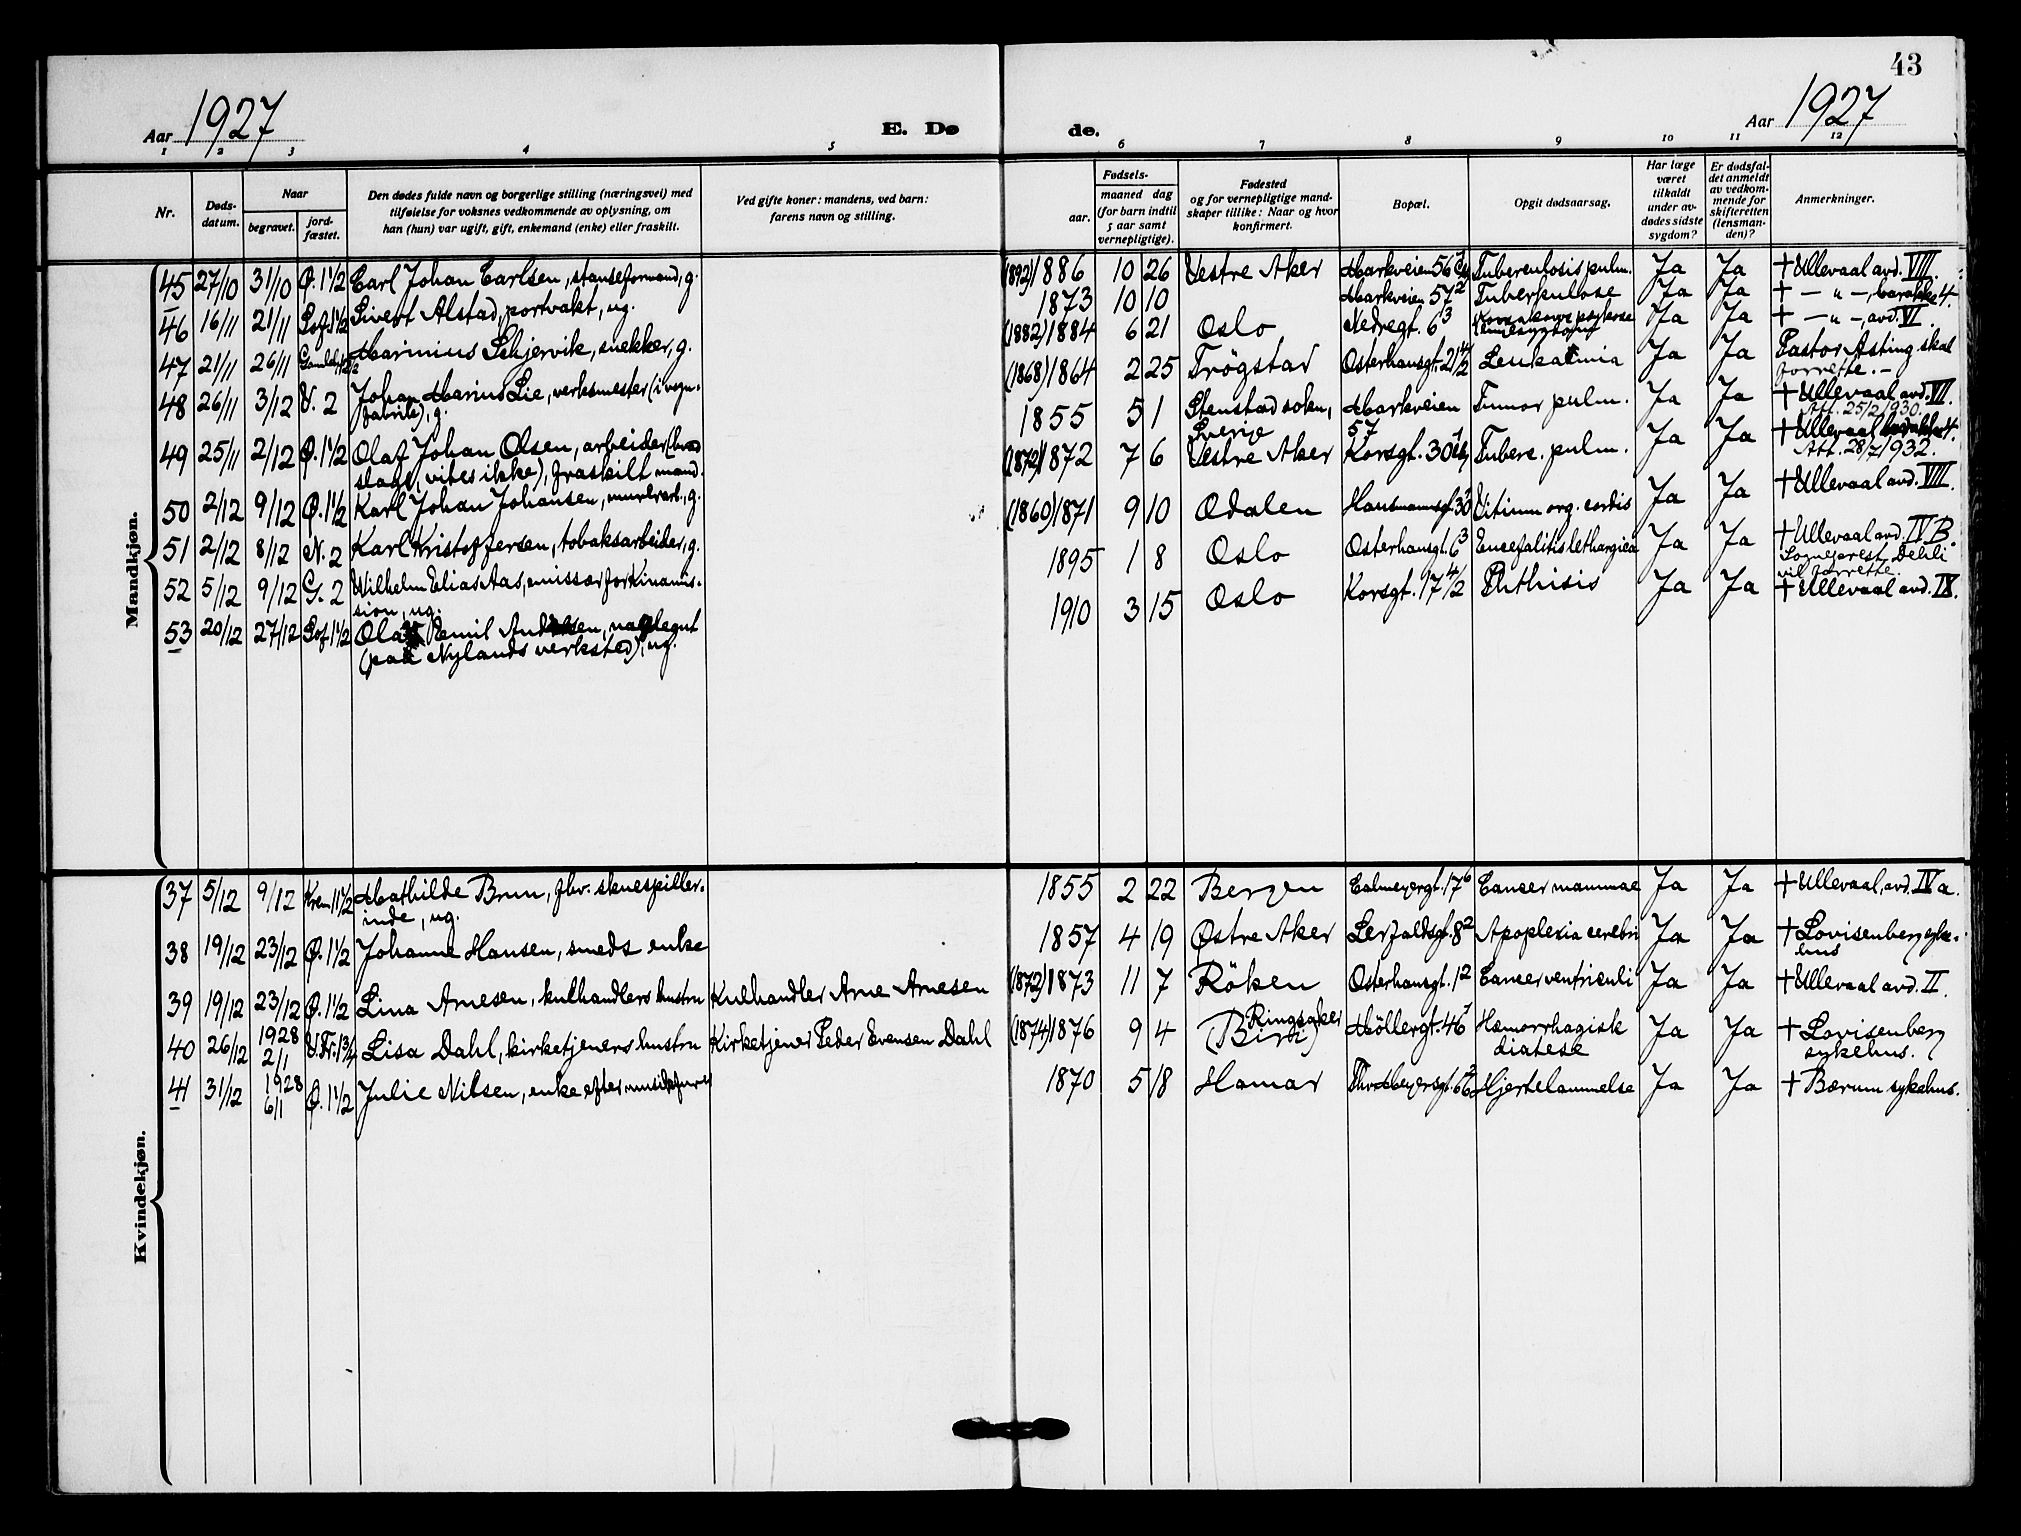 43
Aar 1927
E. Dø de.
Aar 1927
1 2 3 4 5 6 7 8 9 10 11 12
Nr.
Døds-
datum.
Naar
begravet.
jord-
fæstet.
Den dødes fulde navn og borgerlige stilling (næringsvei) med
tilføielse for voksnes vedkommende av oplysning, om
han (hun) var ugift, gift, enkemand (enke) eller fraskilt.
Ved gifte koner: mandens, ved barn:
farens navn og stilling.
Fødsels-
aar.
maaned dag
(for barn indtil
5 aar samt
vernepligtige).
Fødested
og for vernepligtige mand-
skaper tillike: Naar og hvor
konfirmert.
Bopæl.
Opgit dødsaarsag.
Har læge
været
tilkaldt
under av-
dødes sidste
sygdom?
Er dødsfal-
det anmeldt
av vedkom-
mende for
skifteretten
(lensman-
den)?
Anmerkninger.
Mandkjøn.
45 27/10 31/10 Ø. 1 1/2 Carl Johan Carlsen, stanseformand, g. (1892) 1886 10 26 Vestre Aker Markveien 56 Tuberculosis pulm. Ja Ja + Ullevaal avd. VIII.
46 16/11 21/11 Sof. 1 1/2 Sivert Alstad, portvakt, ug. 1873 10 10 Markveien 57 2 Tuberkulose Ja Ja + — " —, barakke 4.
47 21/11 26/11 Gamleb. 1 1/2 Marinius Schjervik, snekker, g. (1882) 1884 6 21 Oslo Nedregt. 6 3 Ja Ja + — " —, avd. VI.
48 26/11 3/12 V. 2 Johan Marius Lie, verksmester (i vogn-
fabrik), g. (1868) 1864 2 25 Trögstad Osterhausgt. 21 Leukæmia Ja Ja Pastor Asting skal
forrette. —
49 25/11 2/12 Ø. 1 1/2 Olaf Johan Olsen, arbeider (hvad
slags, vites ikke), fraskilt mand. 1855 5 1 Stenstad sokn,
Sverige Markveien
57 Tumor pulm. Ja Ja + Ullevaal avd. VII.
Att. 25/2 1930.
50 2/12 9/12 Ø. 1 1/2 Karl Johan Johansen, murerarb., g. (1872) 1872 7 6 Vestre Aker Korsgt. 30 Tuberc. pulm. Ja Ja + Ullevaal barakke 4.
Att. 28/7 1932.
51 2/12 8/12 N. 2 Karl Kristoffersen, tobaksarbeider, g. (1860) 1871 9 10 Odalen Hausmannsgt. 30 Vitium org. cordis Ja Ja + Ullevaal avd. VIII.
52 5/12 9/12 G. 2 Wilhelm Elias Aas, emissær for Kinamis-
sion, ug. 1895 1 8 Oslo Osterhausgt. 6 3 Encefalitis lethargica Ja Ja + Ullevaal avd. IV B.
Sogneprest Dehli
vil forrette.
53 20/12 27/12 Sof. 1 1/2 Olaf Emil Andersen, naglegut
(paa Nylands verksted), ug. 1910 3 15 Oslo Korsgt. 17 4/2 Phthisis Ja Ja + Ullevaal avd. IX.
Kvindekjøn.
37 5/12 9/12 Krem. 11 1/2 Mathilde Brun, fhv. skuespiller-
inde, ug. 1855 2 22 Bergen Calmeyergt. 17 6 Cancer mammae Ja Ja + Ullevaal, avd. IV a.
38 19/12 23/12 Ø. 1 1/2 Johanne Hansen, smeds enke 1857 4 19 Østre Aker Lerfaldsgt. 8 2 Apoplexia cerebri Ja Ja + Lovisenberg syke-
hus
39 19/12 23/12 Ø. 1 1/2 Lina Arnesen, kulhandlers hustru Kulhandler Arne Arnesen (1872) 1873 11 7 Röken Osterhausgt. 1 2 Cancer ventriculi Ja Ja + Ullevaal avd. II.
40 26/12 1928
2/1 V. Fr. 1 3/4 Lisa Dahl, kirketjeners hustru Kirketjener Peder Evensen Dahl (1874) 1876 9 4 Ringsaker
(Biri) Möllergt. 46 Hæmorrhagisk
diatese Ja Ja + Lovisenberg
sykehus.
41 31/12 1928
6/1 Ø. 1 1/2 Julie Nilsen, enke efter musikfurer 1870 5 18 Hamar Hjertelammelse Ja Ja + Bærum sykehus.